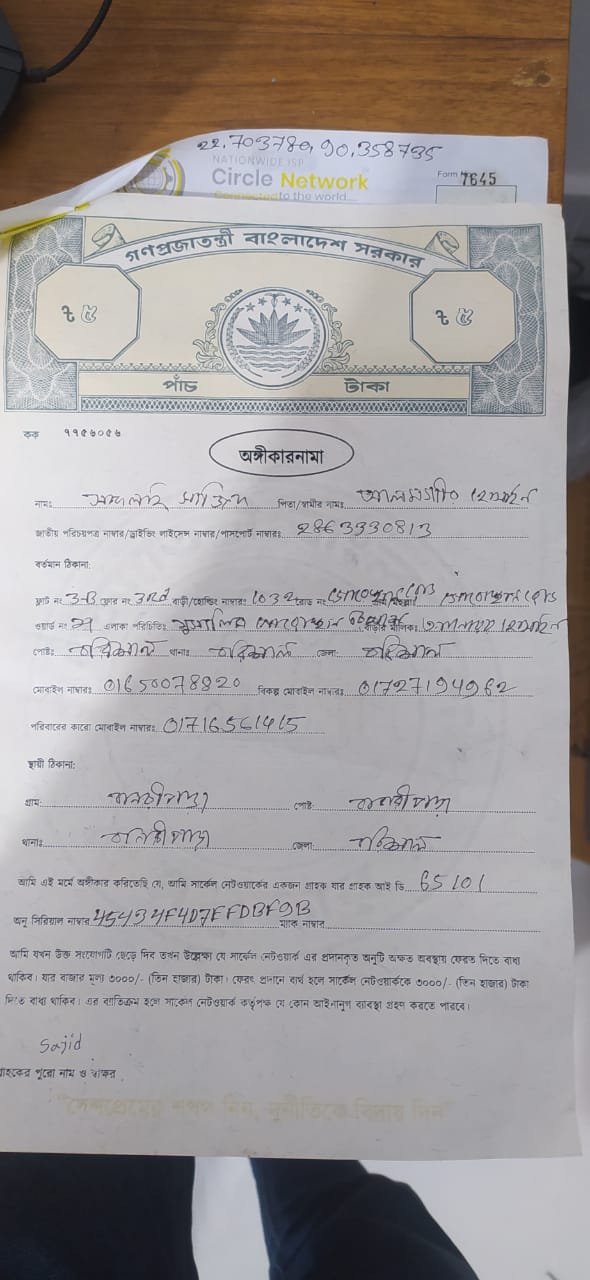 22.703780, 90.358735
NATIONWIDE ISP
Circle Network
Connected to the world....
Form 7645
গণপ্রজাতন্ত্রী বাংলাদেশ সরকার
৳ ৫ ৳ ৫
পাঁচ টাকা
কক ৭৭৫৬০৫৬
অঙ্গীকারনামা
নামঃ পিতা/স্বামীর নামঃ আলমগীর হোসাইন
জাতীয় পরিচয়পত্র নাম্বার/ড্রাইভিং লাইসেন্স নাম্বার/পাসপোর্ট নাম্বারঃ 2863330813
বর্তমান ঠিকানা:
ফ্লাট নং 3-B ফ্লোর নং 3Rd বাড়ী/হোল্ডিং নাম্বারঃ 1032 রোড নং
ওয়ার্ড নং এলাকা পরিচিতিঃ বাড়ীর মালিকঃ
পোষ্টঃ বরিশাল থানাঃ বরিশাল জেলা: বরিশাল
মোবাইল নাম্বারঃ 01650078820 বিকল্প মোবাইল নাম্বারঃ 01727194962
পরিবারের কারো মোবাইল নাম্বারঃ 01716561415
স্থায়ী ঠিকানা:
গ্রাম: বানারীপাড়া পোষ্ট: বানারীপাড়া
থানাঃ বানারীপাড়া জেলা: বরিশাল
আমি এই মর্মে অঙ্গীকার করিতেছি যে, আমি সার্কেল নেটওয়ার্কের একজন গ্রাহক যার গ্রাহক আই ডি 65101
অনু সিরিয়াল নাম্বার 45434F4D7EFDBF9B ম্যাক নাম্বার
আমি যখন উক্ত সংযোগটি ছেড়ে দিব তখন উল্লেক্ষা যে সার্কেল নেটওয়ার্ক এর প্রদানকৃত অনুটি অক্ষত অবস্থায় ফেরত দিতে বাধ্য
থাকিব। যার বাজার মূল্য ৩০০০/- (তিন হাজার) টাকা। ফেরৎ প্রদানে ব্যর্থ হলে সার্কেল নেটওয়ার্ককে ৩০০০/- (তিন হাজার) টাকা
দিতে বাধ্য থাকিব। এর ব্যতিক্রম হলে সার্কেল নেটওয়ার্ক কর্তৃপক্ষ যে কোন আইনানুগ ব্যবস্থা গ্রহণ করতে পারবে।
Sajid
গ্রাহকের পুরো নাম ও স্বাক্ষর
"দেশপ্রেমের শপথ নিন, দুর্নীতিকে বিদায় দিন"